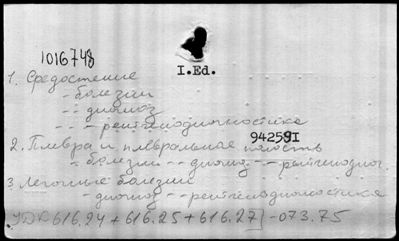 1016748
I.Ed.
1. Средостение
- болезни
- - диагноз
- - - рентгенодиагностика
942591
2. Плевра и плевральная полость
- болезни - - диагноз - - рентгенодиаг.
3. Легочные болезни
- диагноз - - рентгенодиагностика
УДК 616.24 + 616.25 + 616.27] - 073.75